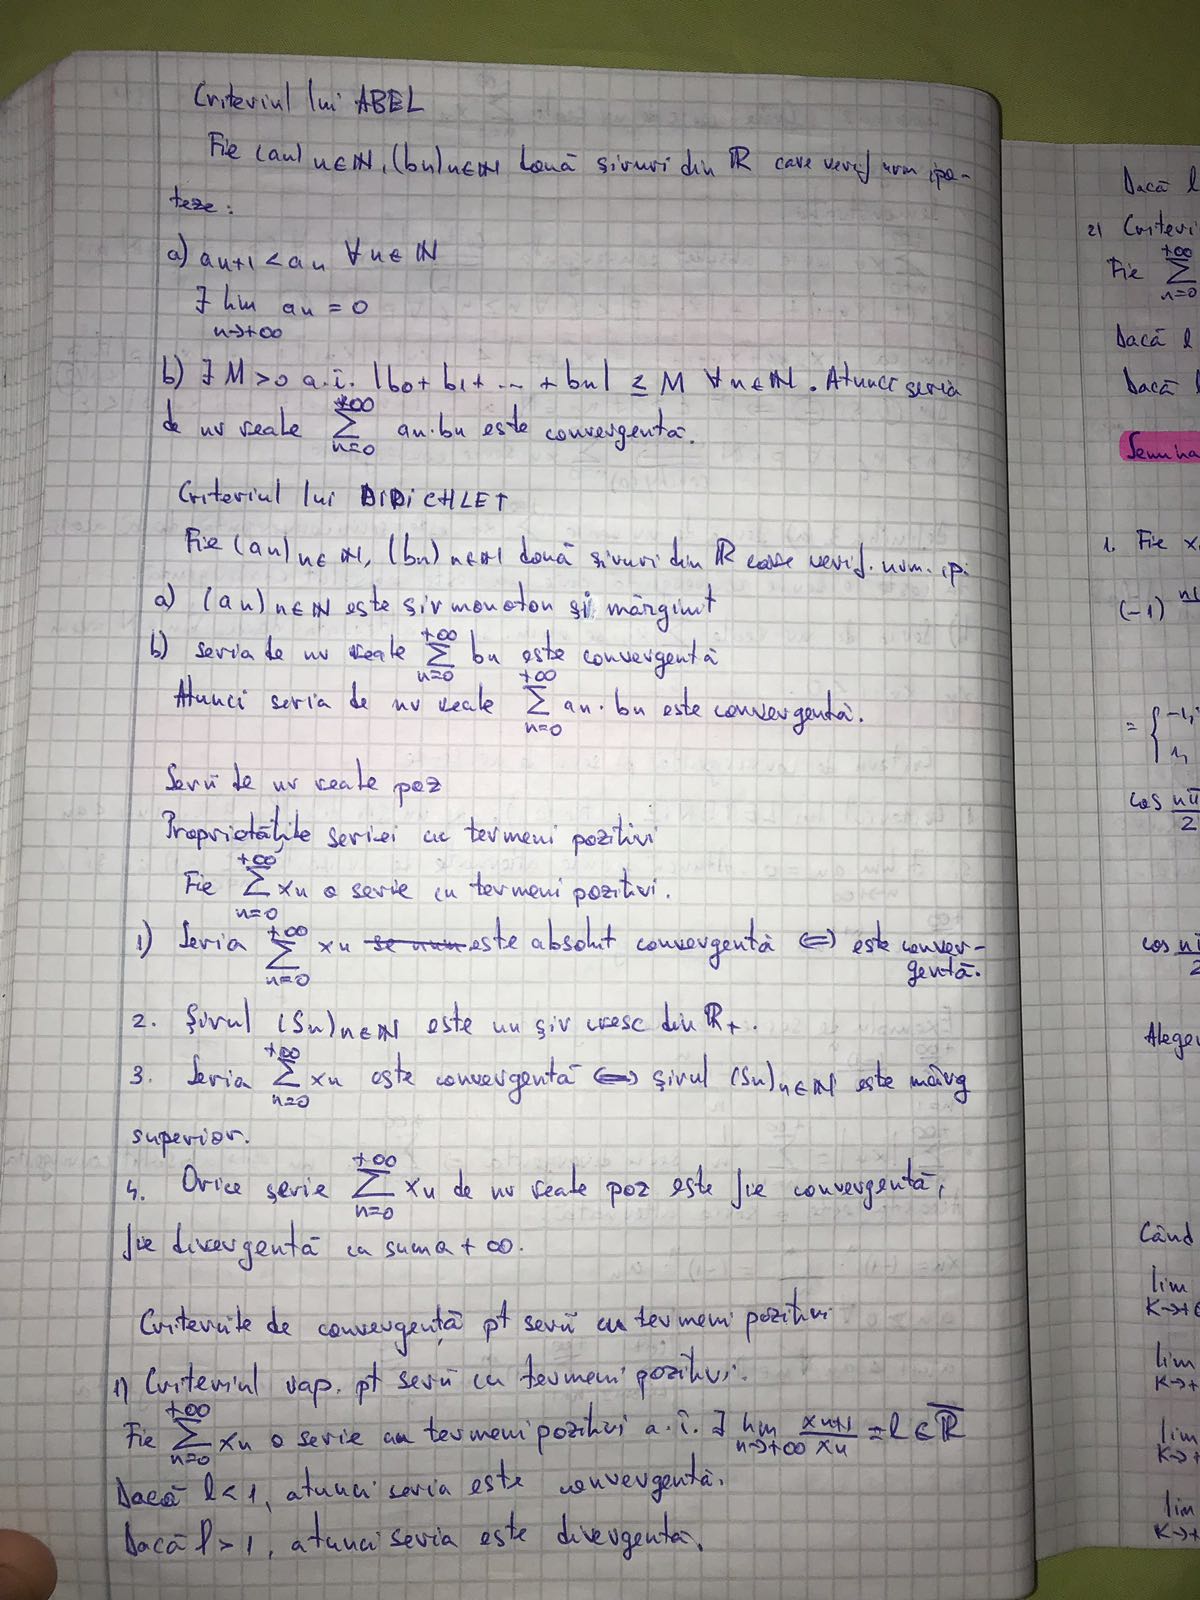 Criteriul lui ABEL
Fie (an) n∈ℕ, (bn) n∈ℕ două șiruri din ℝ care verif urm ipo-
teze:
a) an+1 < an ∀n∈ℕ
∃ lim an = 0
n→+∞
b) ∃ M>0 a.î. |b0+ b1+ ... + bn| ≤ M ∀n∈ℕ. Atunci seria
de nr reale +∞ Σ n=0 an·bn este convergentă.
Criteriul lui DIDiCHLET
Fie (an) n∈ℕ, (bn) n∈ℕ două șiruri din ℝ care verif. urm. ip.
a) (an) n∈ℕ este șir monoton și mărginit
b) seria de nr reale +∞ Σ n=0 bn este convergentă
Atunci seria de nr reale +∞ Σ n=0 an·bn este convergentă.
Serii de nr reale poz
Proprietățile seriei cu termeni pozitivi
Fie +∞ Σ n=0 xn o serie cu termeni pozitivi.
1) Seria +∞ Σ n=0 xn este absolut convergentă ⟺ este conver-
gentă.
2. Șirul (Sn) n∈ℕ este un șir cresc din ℝ+.
3. Seria +∞ Σ n=0 xn este convergentă ⟺ șirul (Sn) n∈ℕ este mărg
superior.
4. Orice serie +∞ Σ n=0 xn de nr reale poz este fie convergentă,
fie divergentă cu suma +∞.
Criteriile de convergență pt serii cu termeni pozitivi
1) Criteriul rap. pt serii cu termeni pozitivi.
Fie +∞ Σ n=0 xn o serie cu termeni pozitivi a.î. ∃ lim n→+∞ xn+1/xn = l ∈ ℝ̅
Dacă l<1, atunci seria este convergentă.
Dacă l>1, atunci seria este divergentă.
Dacă l
2) Criteri
Fie +∞ Σ n=0
Dacă l
Dacă l
Semina
1. Fie x
(-1)
= { -1,
1,
cos nπ/2
cos nπ/2
Aleger
Când
lim
k→+∞
lim
k→+
lim
k→+
lim
k→+